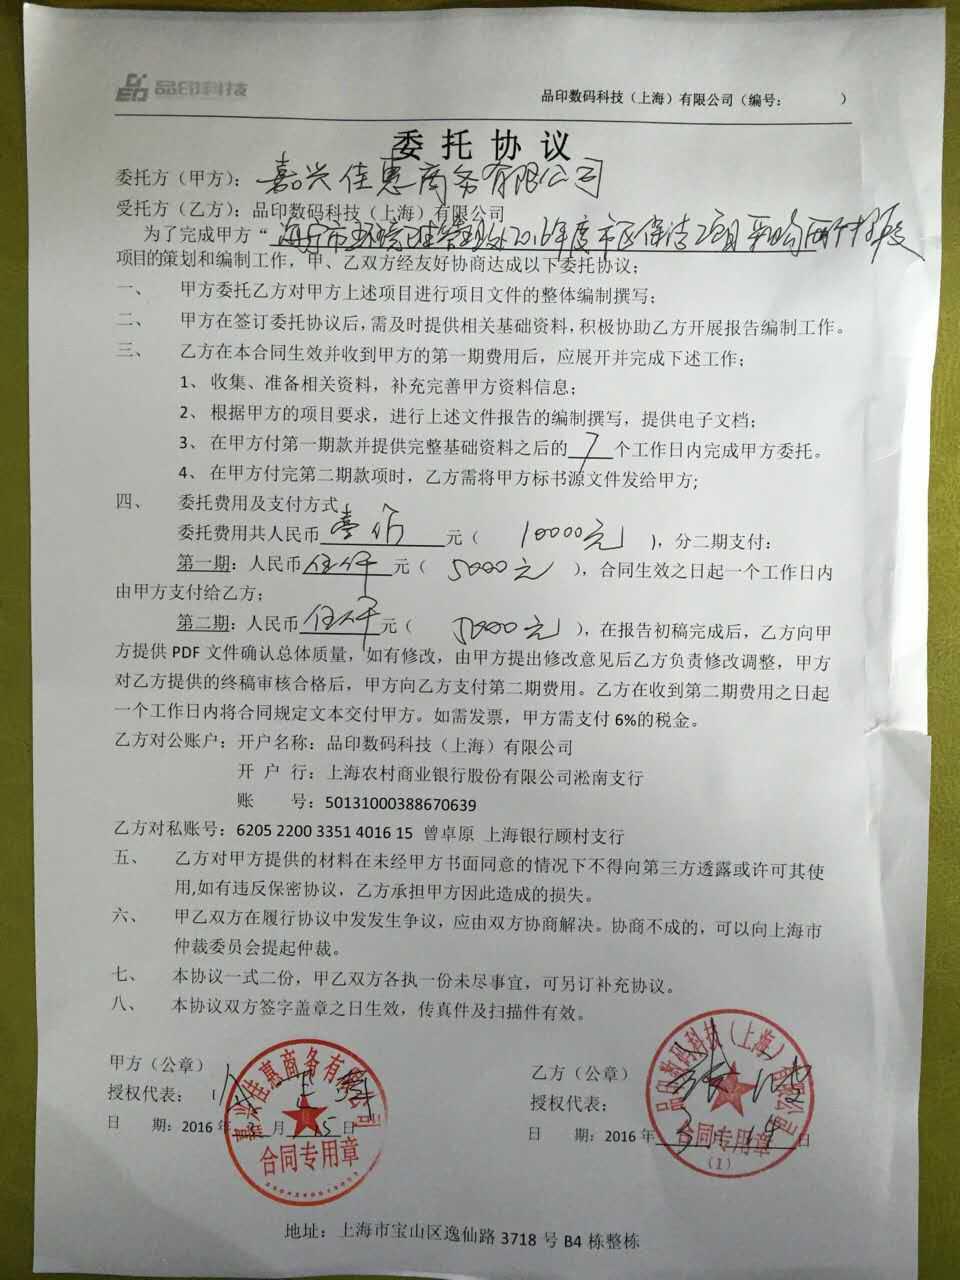 品印科技
品印数码科技（上海）有限公司（编号：　　　）
委托协议
委托方（甲方）：嘉兴佳惠商务有限公司
受托方（乙方）：品印数码科技（上海）有限公司
为了完成甲方“海宁市环境卫生管理处2016年度市区保洁项目采购两个标段
项目的策划和编制工作，甲、乙双方经友好协商达成以下委托协议；
一、 甲方委托乙方对甲方上述项目进行项目文件的整体编制撰写；
二、 甲方在签订委托协议后，需及时提供相关基础资料，积极协助乙方开展报告编制工作。
三、 乙方在本合同生效并收到甲方的第一期费用后，应展开并完成下述工作；
1、 收集、准备相关资料，补充完善甲方资料信息；
2、 根据甲方的项目要求，进行上述文件报告的编制撰写，提供电子文档；
3、 在甲方付第一期款并提供完整基础资料之后的 7 个工作日内完成甲方委托。
4、 在甲方付完第二期款项时，乙方需将甲方标书源文件发给甲方;
四、 委托费用及支付方式
委托费用共人民币 壹 元（ 10000元 ），分二期支付：
第一期：人民币 伍仟 元（ 5000元 ），合同生效之日起一个工作日内
由甲方支付给乙方；
第二期：人民币 伍仟 元（ 5000元 ），在报告初稿完成后，乙方向甲
方提供 PDF 文件确认总体质量，如有修改，由甲方提出修改意见后乙方负责修改调整，甲方
对乙方提供的终稿审核合格后，甲方向乙方支付第二期费用。乙方在收到第二期费用之日起
一个工作日内将合同规定文本交付甲方。如需发票，甲方需支付 6%的税金。
乙方对公账户：开户名称：品印数码科技（上海）有限公司
开 户 行：上海农村商业银行股份有限公司淞南支行
账　　号：50131000388670639
乙方对私账号：6205 2200 3351 4016 15 曾卓原 上海银行顾村支行
五、 乙方对甲方提供的材料在未经甲方书面同意的情况下不得向第三方透露或许可其使
用,如有违反保密协议，乙方承担甲方因此造成的损失。
六、 甲乙双方在履行协议中发发生争议，应由双方协商解决。协商不成的，可以向上海市
仲裁委员会提起仲裁。
七、 本协议一式二份，甲乙双方各执一份未尽事宜，可另订补充协议。
八、 本协议双方签字盖章之日生效，传真件及扫描件有效。
甲方（公章）
授权代表：
日　　期：2016 年 3 月 15 日
嘉兴佳惠商务有限公司
合同专用章
乙方（公章）
授权代表：
日　　期：2016 年 3 日
品印数码科技（上海）有限公司
合同专用章
（1）
地址：上海市宝山区逸仙路 3718 号 B4 栋整栋